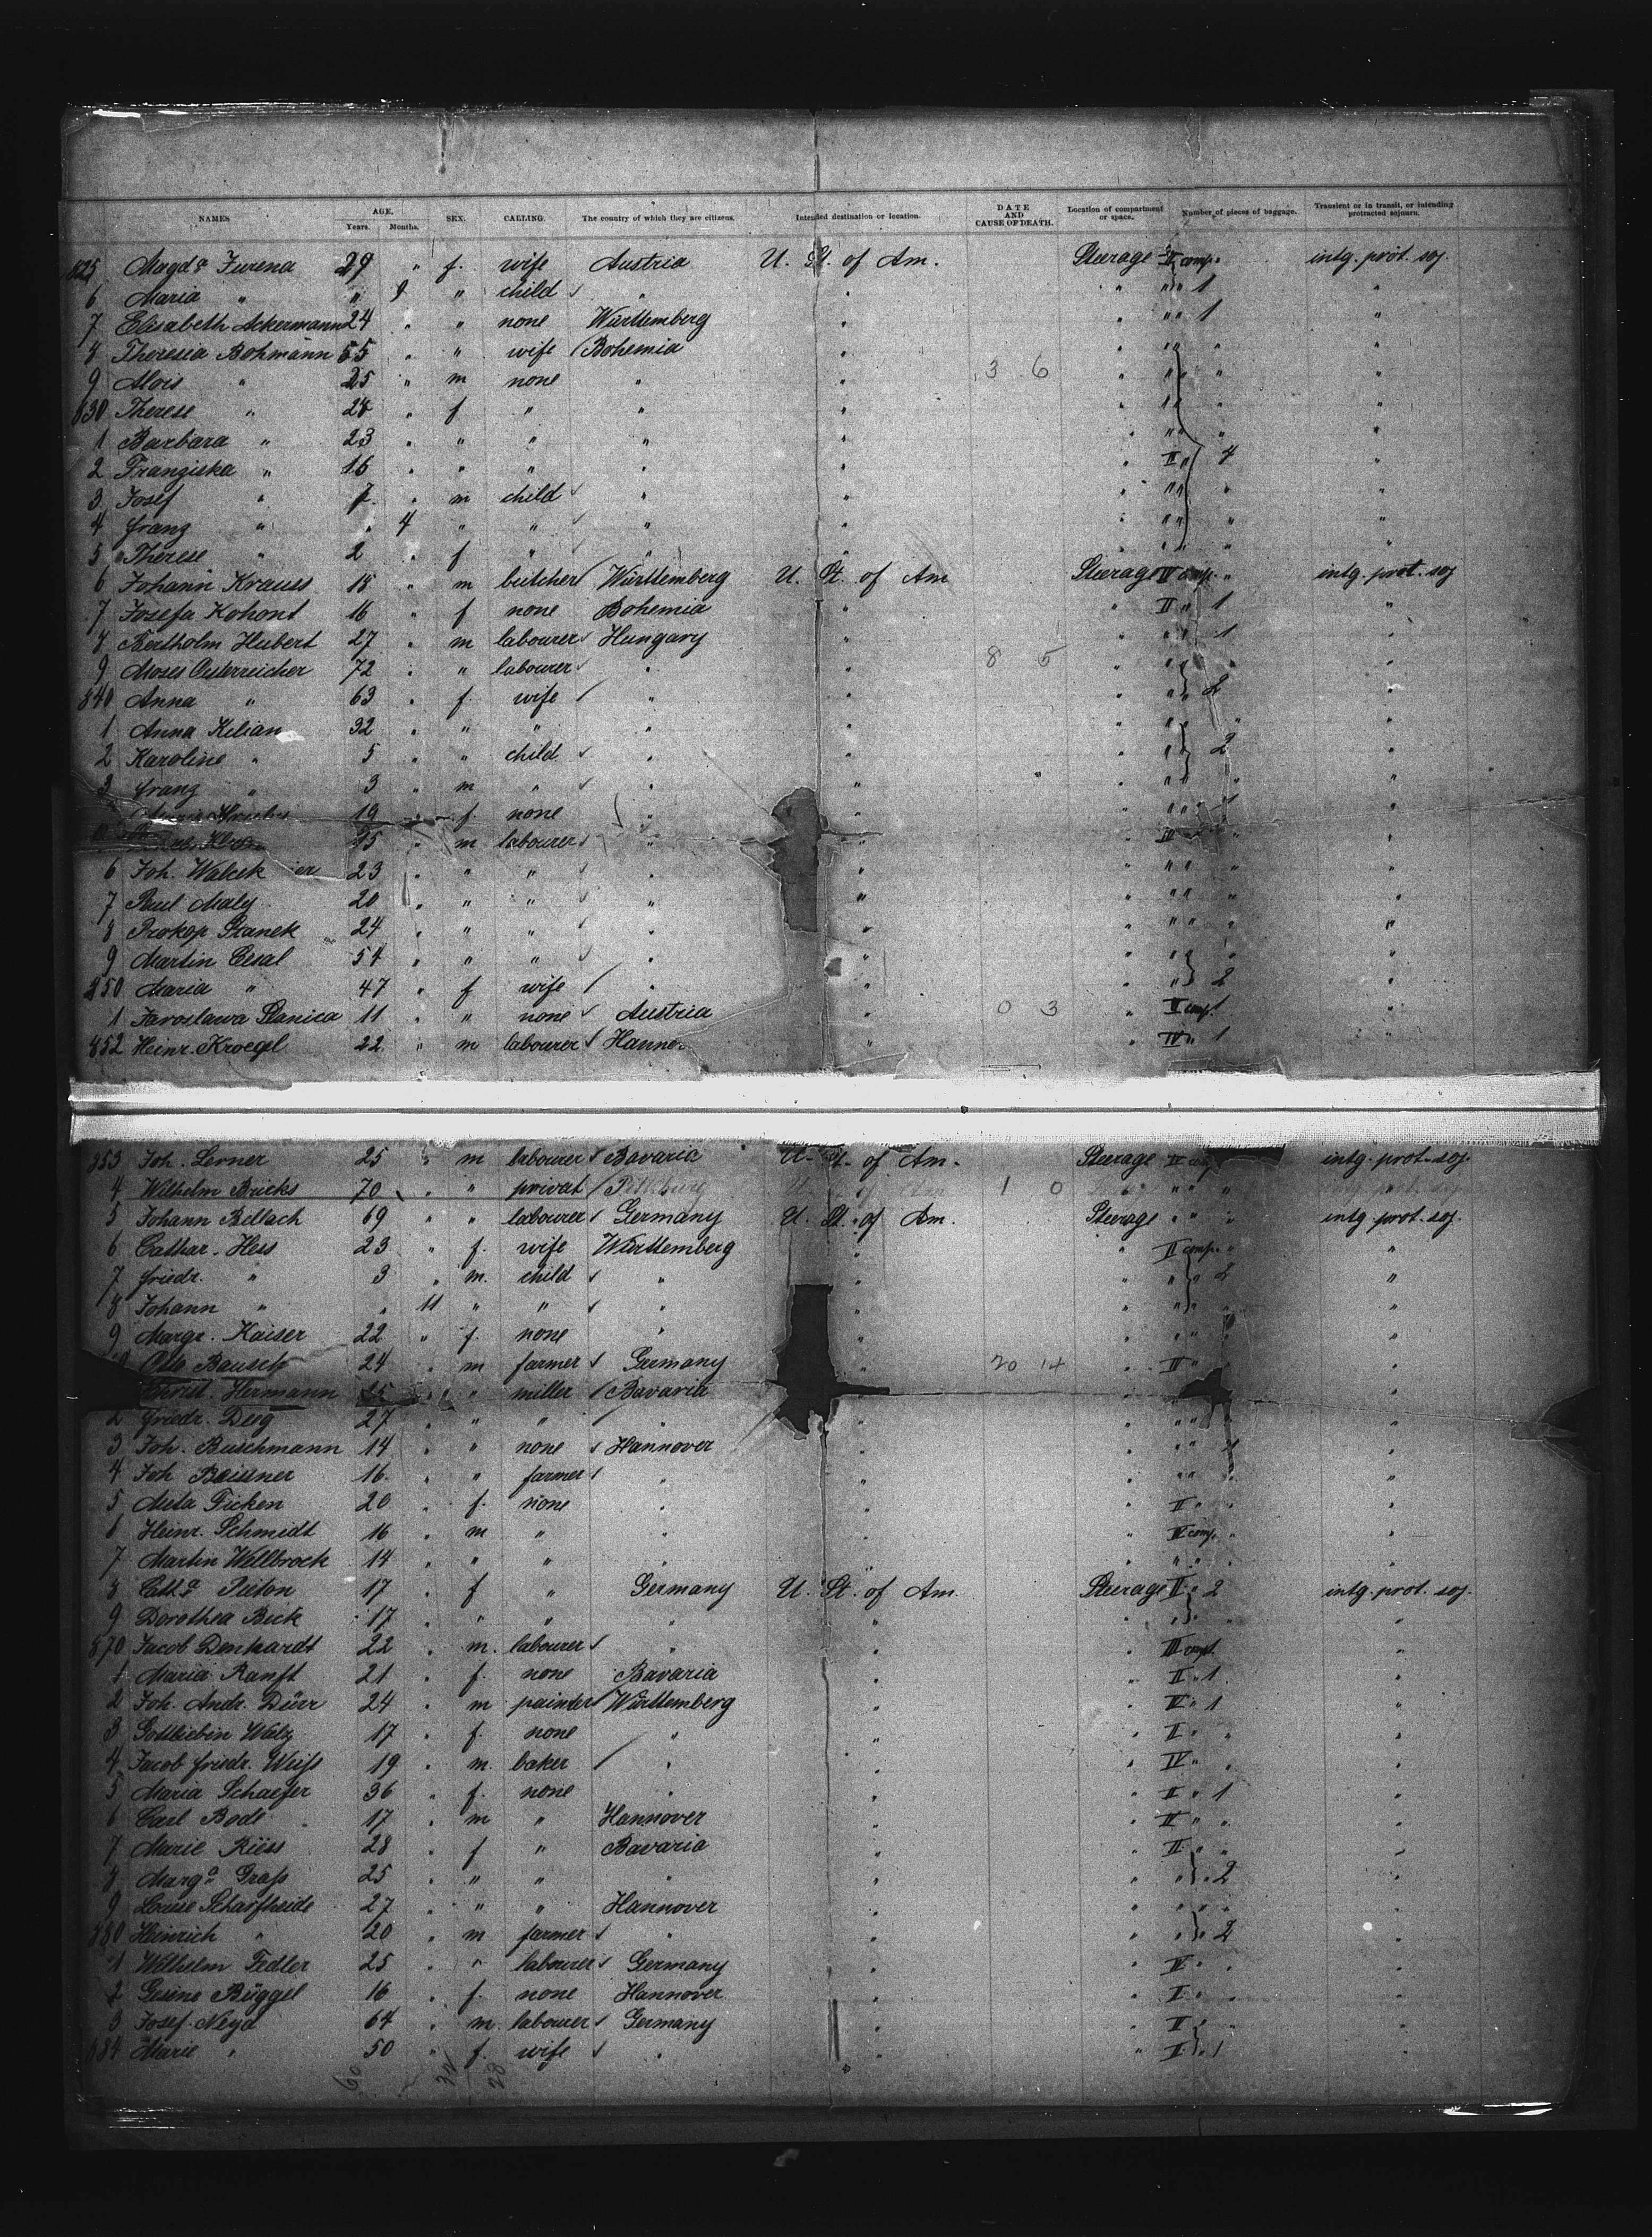 NAMES AGE. Years. Months. SEX. CALLING. The country of which they are citizens. Intended destination or location. DATE AND CAUSE OF DEATH. Location of compartment or space. Number of pieces of baggage. Transient or in transit, or intending protracted sojourn.
825 Magdª Furena 29 " f. wife Austria U. St. of Am. Steerage II comp. intg. prot. soj.
6 Maria " " 9 " child " " " " " 1 "
7 Elisabeth Ackermann 24 " " none Württemberg " " " " 1 "
8 Theresia Bohmann 55 " " wife Bohemia " " " " "
9 Alois " 25 " m none " " 3 6 " " " " "
830 Therese " 28 " f " " " " " " "
1 Barbara " 23 " " " " " " " " " "
2 Franziska " 16 " " " " " " II " 4 "
3 Josef " 7 " m child " " " " " "
4 Franz " " 4 " " " " " " " " "
5 Therese " 2 " f " " " " " " "
6 Johann Krauss 18 " m butcher Württemberg U. St. of Am Steerage IV comp. " intg. prot. soj
7 Josefa Kohont 16 " f none Bohemia " " II " 1 "
8 Bertholm Hubert 27 " m labourer Hungary " " " " 1 "
9 Moses Oesterreicher 72 " " labourer " " 8 5 " " " "
840 Anna " 63 " f. wife " " " " " 2 "
1 Anna Kilian 32 " " " " " " " " " "
2 Karoline " 5 " " child " " " " 2 "
3 Franz " 3 " m " " " " " " " "
19 " f. none " " " " " 1 "
25 " m labourer " " " III " "
6 Joh. Walcek 23 " " " " " " " " " "
7 Paul Maly 20 " " " " " " " " " "
8 Prokop Stanek 24 " " " " " " " " " "
9 Martin Cesal 54 " " " " " " " " "
850 Maria " 47 " f wife " " " " 2 "
1 Jaroslawa Stanica 11 " " none Austria " 0 3 " II comp. 1 "
852 Heinr. Kroegel 22 " m labourer Hanno. " " IV " 1 "
853 Joh. Lerner 25 " m labourer Bavaria U. St. of Am. Steerage IV comp intg. prot. soj.
4 Wilhelm Bricks 70 " " privat 1 0 " " "
5 Johann Bellach 69 " " labourer Germany U. St. of Am. Steerage " " " intg. prot. soj.
6 Cathar. Hess 23 " f. wife Württemberg " " II comp. " "
7 Friedr. " 3 " m. child " " " " " 2 "
8 Johann " " 11 " " " " " " " " "
9 Margr. Kaiser 22 " f. none " " " " " " "
Otto Bausch 24 " m farmer Germany " 20 14 " IV " "
Christ. Hermann 25 " " miller Bavaria " " "
2 Friedr. Deeg 27 " " " " " " " " "
3 Joh. Buschmann 14 " " none Hannover " " " " "
4 Joh Beissner 16 " " farmer " " " " " "
5 Meta Ficken 20 " f. none " " " II " " "
6 Heinr. Schmidt 16 " m " " " " IV comp. " "
7 Martin Wellbrock 14 " " " " " " " " " "
8 Cathª Pieton 17 " f " Germany U. St. of Am. Steerage II " 2 intg. prot. soj.
9 Dorothea Beck 17 " " " " " " " " " "
870 Jacob Denhardt 22 " m. labourer " " " III comp. 1 "
1 Maria Ranft 21 " f. none Bavaria " " II " 1 "
2 Joh. Andr. Dürr 24 " m painter Württemberg " " IV " 1 "
3 Gottliebin Walz 17 " f. none " " " II " " "
4 Jacob Friedr. Weiss 19 " m. baker " " " IV " " "
5 Maria Schaefer 36 " f. none " " " II " 1 "
6 Carl Bode 17 " m " Hannover " " IV " " "
7 Marie Riess 28 " f " Bavaria " " II " " "
8 Margª Grass 25 " " " " " " " 2 "
9 Louise Scharfheide 27 " " " Hannover " " " " " "
880 Heinrich " 20 " m farmer " " " " 2 "
1 Wilhelm Fedler 25 " " labourer Germany " " IV " " "
2 Gesine Büggel 16 " f. none Hannover " " II " " "
3 Josef Neya 64 " m. labourer Germany " " II " " "
884 Marie " 50 " f. wife " " " II " 1 "